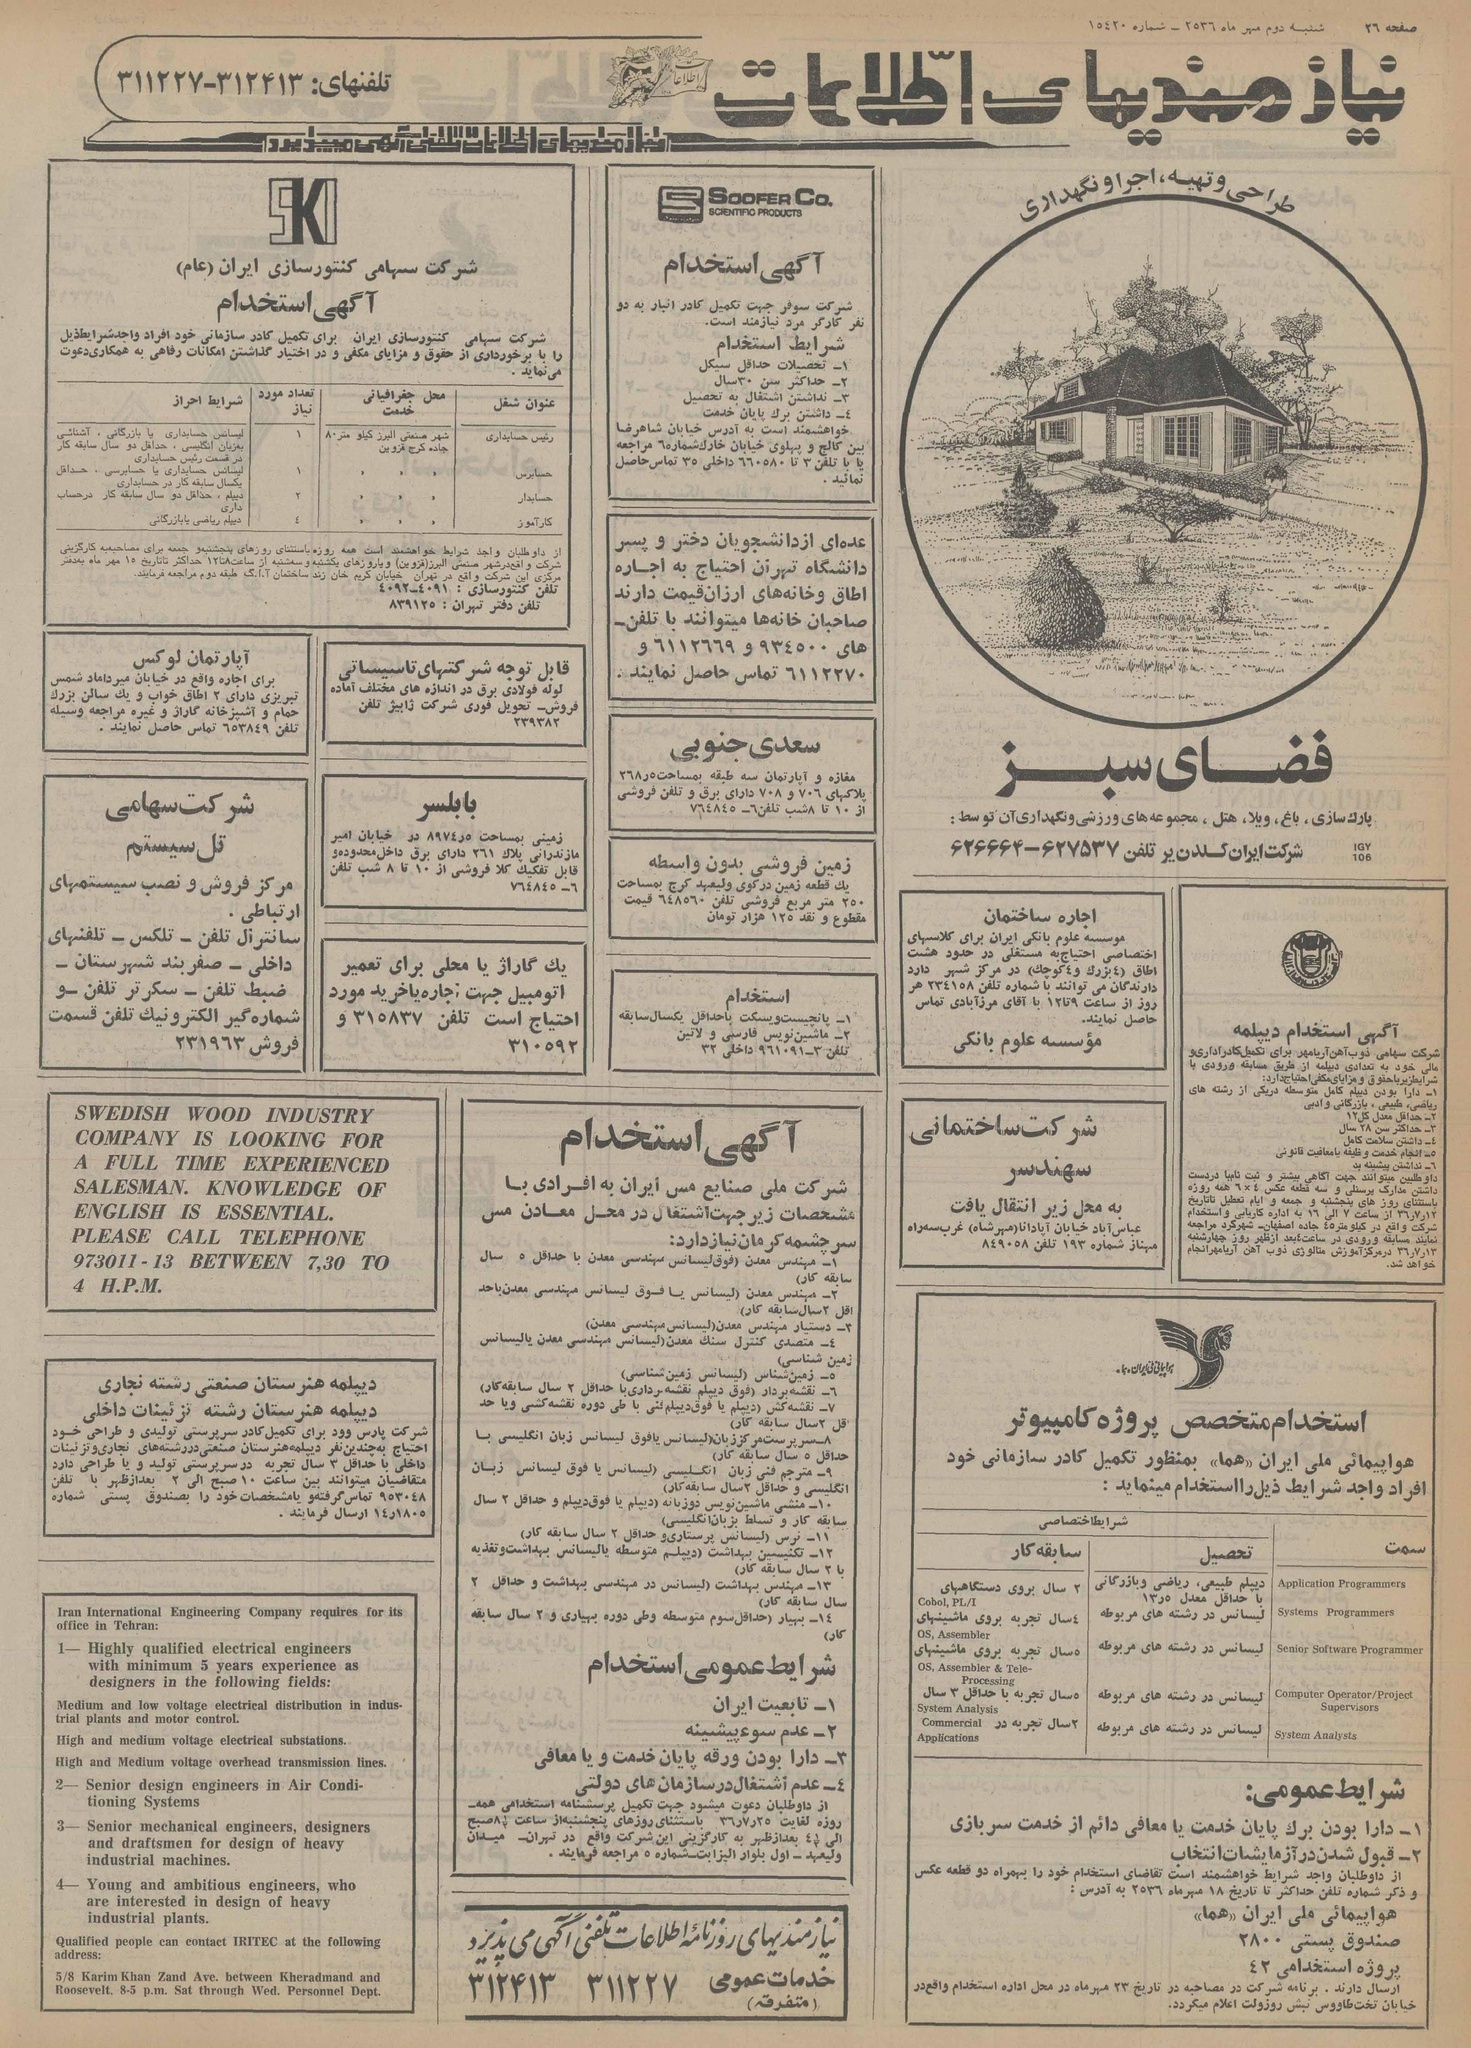 صفحه ۲۶
شنبه دوم مهر ماه ۲۵۳۶ – شماره ۱۵۴۲۰
نیازمندیهای اطلاعات
تلفنهای: ۳۱۲۴۱۳-۳۱۱۲۲۷
نیازمندیهای اطلاعات تلفنی آگهی میپذیرد
طراحی و تهیه، اجرا و نگهداری
فضای سبز
پارك سازی، باغ، ویلا، هتل، مجموعه های ورزشی و نگهداری آن توسط:
شرکت ایران گلدن یر تلفن ۶۲۷۵۳۷-۶۲۶۶۶۴
IGY
106
SOOFER CO.
SCIENTIFIC PRODUCTS
آگهی استخدام
شرکت سوفر جهت تکمیل کادر انبار به دو
نفر کارگر مرد نیازمند است.
شرایط استخدام
۱- تحصیلات حداقل سیکل
۲- حداکثر سن ۳۰ سال
۳- نداشتن اشتغال به تحصیل
۴- داشتن برك پایان خدمت
خواهشمند است به آدرس خیابان شاهرضا
بین کالج و پهلوی خیابان خارك شماره ۶ مراجعه
یا با تلفن ۳ تا ۶۶۰۵۸۰ داخلی ۳۵ تماس حاصل
نمائید.
SKI
شرکت سهامی کنتورسازی ایران (عام)
آگهی استخدام
شرکت سهامی کنتورسازی ایران برای تکمیل کادر سازمانی خود افراد واجد شرایط ذیل
را با برخورداری از حقوق و مزایای مکفی و در اختیار گذاشتن امکانات رفاهی به همکاری دعوت
می نماید.
عنوان شغل | محل جغرافیائی خدمت | تعداد مورد نیاز | شرایط احراز
رئیس حسابداری | شهر صنعتی البرز کیلو متر ۸۰ جاده کرج قزوین | ۱ | لیسانس حسابداری یا بازرگانی، آشنائی بزبان انگلیسی، حداقل دو سال سابقه کار در قسمت رئیس حسابداری
حسابرس | » » » | ۱ | لیسانس حسابداری یا حسابرسی، حداقل یکسال سابقه کار در حسابداری
حسابدار | » » » | ۲ | دیپلم، حداقل دو سال سابقه کار در حساب داری
کارآموز | » » » | ۴ | دیپلم ریاضی یا بازرگانی
از داوطلبان واجد شرایط خواهشمند است همه روزه باستثنای روزهای پنجشنبه و جمعه برای مصاحبه به کارگزینی
شرکت واقع در شهر صنعتی البرز (قزوین) و یا روزهای یکشنبه و سه شنبه از ساعت ۸ تا ۱۲ حداکثر تا تاریخ ۱۵ مهر ماه به دفتر
مرکزی این شرکت واقع در تهران خیابان کریم خان زند ساختمان آ.آ.گ طبقه دوم مراجعه فرمایند.
تلفن کنتورسازی: ۴۰۹۱-۴۰۹۲
تلفن دفتر تهران: ۸۳۹۱۲۵
عده‌ای از دانشجویان دختر و پسر
دانشگاه تهران احتیاج به اجاره
اطاق و خانه‌های ارزان قیمت دارند
صاحبان خانه‌ها میتوانند با تلفن-
های ۹۳۴۵۰۰ و ۶۱۱۲۶۶۹ و
۶۱۱۲۲۷۰ تماس حاصل نمایند.
قابل توجه شرکتهای تاسیساتی
لوله فولادی برق در اندازه های مختلف آماده
فروش- تحویل فوری شرکت ژابیژ تلفن
۲۳۹۳۸۲
آپارتمان لوکس
برای اجاره واقع در خیابان میرداماد شمس
تبریزی دارای ۲ اطاق خواب و یك سالن بزرك
حمام و آشپزخانه گاراژ و غیره مراجعه وسیله
تلفن ۶۵۳۸۴۹ تماس حاصل نمایند.
سعدی جنوبی
مغازه و آپارتمان سه طبقه بمساحت ۲۶۸٫۵
پلاکهای ۷۰۶ و ۷۰۸ دارای برق و تلفن فروشی
از ۱۰ تا ۸ شب تلفن ۶-۷۶۴۸۴۵.
بابلسر
زمینی بمساحت ۸۹۷۴٫۵ در خیابان امیر
مازندرانی پلاك ۲۶۱ دارای برق داخل محدوده و
قابل تفکیك کلا فروشی از ۱۰ تا ۸ شب تلفن
۶-۷۶۴۸۴۵
شرکت سهامی
تل سیستم
مرکز فروش و نصب سیستمهای
ارتباطی.
سانترال تلفن - تلکس - تلفنهای
داخلی - صفر بند شهرستان -
ضبط تلفن - سکرتر تلفن - و
شماره گیر الکترونیك تلفن قسمت
فروش ۲۳۱۹۶۳
زمین فروشی بدون واسطه
یك قطعه زمین در کوی ولیعهد کرج بمساحت
۲۵۰ متر مربع فروشی تلفن ۶۴۸۵۶۰ قیمت
مقطوع و نقد ۱۲۵ هزار تومان
یك گاراژ یا محلی برای تعمیر
اتومبیل جهت اجاره یا خرید مورد
احتیاج است تلفن ۳۱۵۸۳۷ و
۳۱۰۵۹۲
استخدام
۱- پانچیست ویسکت با حداقل یکسال سابقه
۲- ماشین نویس فارسی و لاتین
تلفن ۳-۹۶۱۰۹۱ داخلی ۳۲
اجاره ساختمان
موسسه علوم بانکی ایران برای کلاسهای
اختصاصی احتیاج به مستغلی در حدود هشت
اطاق (۴ بزرك و ۴ کوچك) در مرکز شهر دارد
دارندگان می توانند با شماره تلفن ۲۳۴۱۵۸ هر
روز از ساعت ۹ تا ۱۲ با آقای مرزآبادی تماس
حاصل نمایند.
مؤسسه علوم بانکی
آگهی استخدام دیپلمه
شرکت سهامی ذوب آهن آریامهر برای تکمیل کادر اداری و
مالی خود به تعدادی دیپلمه از طریق مسابقه ورودی با
شرایط زیر با حقوق و مزایای مکفی احتیاج دارد:
۱- دارا بودن دیپلم کامل متوسطه در یکی از رشته های
ریاضی، طبیعی، بازرگانی و ادبی
۲- حداقل معدل کل ۱۲
۳- حداکثر سن ۲۸ سال
۴- داشتن سلامت کامل
۵- انجام خدمت وظیفه یا معافیت قانونی
۶- نداشتن پیشینه بد
داوطلبین میتوانند جهت آگاهی بیشتر و ثبت نام با در دست
داشتن مدارک پرسنلی و سه قطعه عکس ۴ × ۶ همه روزه
باستثنای روز های پنجشنبه و جمعه و ایام تعطیل تا تاریخ
۳۶٫۷٫۱۲ از ساعت ۷ الی ۱۶ به اداره کاریابی و استخدام
شرکت واقع در کیلومتر ۴۵ جاده اصفهان- شهرکرد مراجعه
نمایند مسابقه ورودی در ساعت ۴ بعد از ظهر روز چهارشنبه
۳۶٫۷٫۱۳ در مرکز آموزش متالوژی ذوب آهن آریامهر انجام
خواهد شد.
شرکت ساختمانی
سهندسر
به محل زیر انتقال یافت
عباس آباد خیابان آپادانا (مهرشاه) غرب سه راه
مهناز شماره ۱۹۳ تلفن ۸۴۹۰۵۸
SWEDISH WOOD INDUSTRY
COMPANY IS LOOKING FOR
A FULL TIME EXPERIENCED
SALESMAN. KNOWLEDGE OF
ENGLISH IS ESSENTIAL.
PLEASE CALL TELEPHONE
973011-13 BETWEEN 7,30 TO
4 H.P.M.
آگهی استخدام
شرکت ملی صنایع مس ایران به افرادی با
مشخصات زیر جهت اشتغال در محل معادن مس
سرچشمه کرمان نیاز دارد:
۱- مهندس معدن (فوق لیسانس مهندسی معدن با حداقل ۵ سال
سابقه کار)
۲- مهندس معدن (لیسانس یا فوق لیسانس مهندسی معدن با حد
اقل ۲ سال سابقه کار)
۳- دستیار مهندس معدن (لیسانس مهندسی معدن)
۴- متصدی کنترل سنك معدن (لیسانس مهندسی معدن یا لیسانس
زمین شناسی)
۵- زمین شناس (لیسانس زمین شناسی)
۶- نقشه بردار (فوق دیپلم نقشه برداری با حداقل ۲ سال سابقه کار)
۷- نقشه کش (دیپلم یا فوق دیپلم فنی با طی دوره نقشه کشی و یا حد
قل ۲ سال سابقه کار)
۸- سرپرست مرکز زبان (لیسانس یا فوق لیسانس زبان انگلیسی با
حداقل ۵ سال سابقه کار)
۹- مترجم فنی زبان انگلیسی (لیسانس یا فوق لیسانس زبان
انگلیسی و حداقل ۲ سال سابقه کار)
۱۰- منشی ماشین نویس دوزبانه (دیپلم یا فوق دیپلم و حداقل ۲ سال
سابقه کار و تسلط بزبان انگلیسی)
۱۱- نرس (لیسانس پرستاری و حداقل ۲ سال سابقه کار)
۱۲- تکنیسین بهداشت (دیپلم متوسطه یا لیسانس بهداشت و تغذیه
با ۲ سال سابقه کار)
۱۳- مهندس بهداشت (لیسانس در مهندسی بهداشت و حداقل ۲
سال سابقه کار)
۱۴- بهیار (حداقل سوم متوسطه وطی دوره بهیاری و ۲ سال سابقه
کار)
شرایط عمومی استخدام
۱- تابعیت ایران
۲- عدم سوء پیشینه
۳- دارا بودن ورقه پایان خدمت و یا معافی
۴- عدم اشتغال در سازمان های دولتی
از داوطلبان دعوت میشود جهت تکمیل پرسشنامه استخدامی همه-
روزه لغایت ۳۶٫۷٫۲۵ باستثنای روزهای پنجشنبه از ساعت ½۸ صبح
الی ½۴ بعدازظهر به کارگزینی این شرکت واقع در تهران- میدان
ولیعهد - اول بلوار الیزابت- شماره ۵ مراجعه فرمایند.
هواپیمائی ملی ایران «هما»
استخدام متخصص پروژه کامپیوتر
هواپیمائی ملی ایران «هما» بمنظور تکمیل کادر سازمانی خود
افراد واجد شرایط ذیل را استخدام مینماید:
سمت | شرایط اختصاصی
تحصیل | سابقه کار
Application Programmers | دیپلم طبیعی، ریاضی و بازرگانی با حداقل معدل ۱۳٫۵ | ۲ سال بروی دستگاههای Cobol, PL/I
Systems Programmers | لیسانس در رشته های مربوطه | ۴ سال تجربه بروی ماشینهای OS, Assembler
Senior Software Programmer | لیسانس در رشته های مربوطه | ۵ سال تجربه بروی ماشینهای OS, Assembler & Tele-Processing
Computer Operator/Project Supervisors | لیسانس در رشته های مربوطه | ۵ سال تجربه با حداقل ۳ سال System Analysis
System Analysts | لیسانس در رشته های مربوطه | ۲ سال تجربه در Commercial Applications
شرایط عمومی:
۱- دارا بودن برك پایان خدمت یا معافی دائم از خدمت سربازی
۲- قبول شدن در آزمایشات انتخاب
از داوطلبان واجد شرایط خواهشمند است تقاضای استخدام خود را بهمراه دو قطعه عکس
و ذکر شماره تلفن حداکثر تا تاریخ ۱۸ مهرماه ۲۵۳۶ به آدرس:
هواپیمائی ملی ایران «هما»
صندوق پستی ۲۸۰۰
پروژه استخدامی ۴۲
ارسال دارند. برنامه شرکت در مصاحبه در تاریخ ۲۳ مهرماه در محل اداره استخدام واقع در
خیابان تخت طاووس نبش روزولت اعلام میگردد.
دیپلمه هنرستان صنعتی رشته نجاری
دیپلمه هنرستان رشته تزئینات داخلی
شرکت پارس وود برای تکمیل کادر سرپرستی تولیدی و طراحی خود
احتیاج به چندین نفر دیپلمه هنرستان صنعتی در رشته های نجاری و تزئینات
داخلی با حداقل ۳ سال تجربه در سرپرستی تولید و یا طراحی دارد
متقاضیان میتوانند بین ساعت ۱۰ صبح الی ۲ بعدازظهر با تلفن
۹۵۳۰۴۸ تماس گرفته و یا مشخصات خود را بصندوق پستی شماره
۱۴٫۱۸۰۵ ارسال فرمایند.
Iran International Engineering Company requires for its
office in Tehran:
1— Highly qualified electrical engineers
with minimum 5 years experience as
designers in the following fields:
Medium and low voltage electrical distribution in indus-
trial plants and motor control.
High and medium voltage electrical substations.
High and Medium voltage overhead transmission lines.
2— Senior design engineers in Air Condi-
tioning Systems
3— Senior mechanical engineers, designers
and draftsmen for design of heavy
industrial machines.
4— Young and ambitious engineers, who
are interested in design of heavy
industrial plants.
Qualified people can contact IRITEC at the following
address:
5/8 Karim Khan Zand Ave. between Kheradmand and
Roosevelt. 8-5 p.m. Sat through Wed. Personnel Dept.
نیازمندیهای روزنامه اطلاعات تلفنی آگهی می پذیرد
خدمات عمومی ۳۱۱۲۲۷ ۳۱۲۴۱۳
(متفرقه)